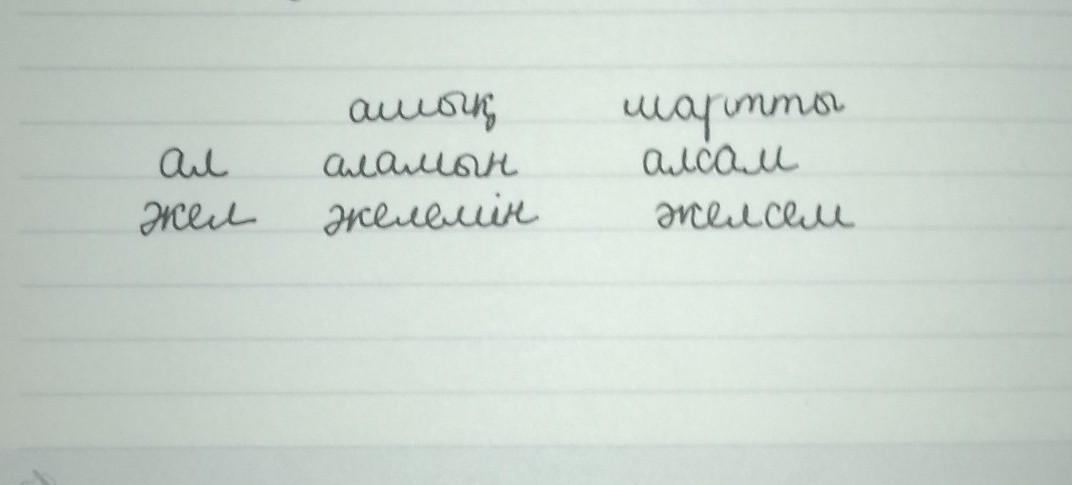 ашық шартты
ал аламын алсам
жел желемін желсем